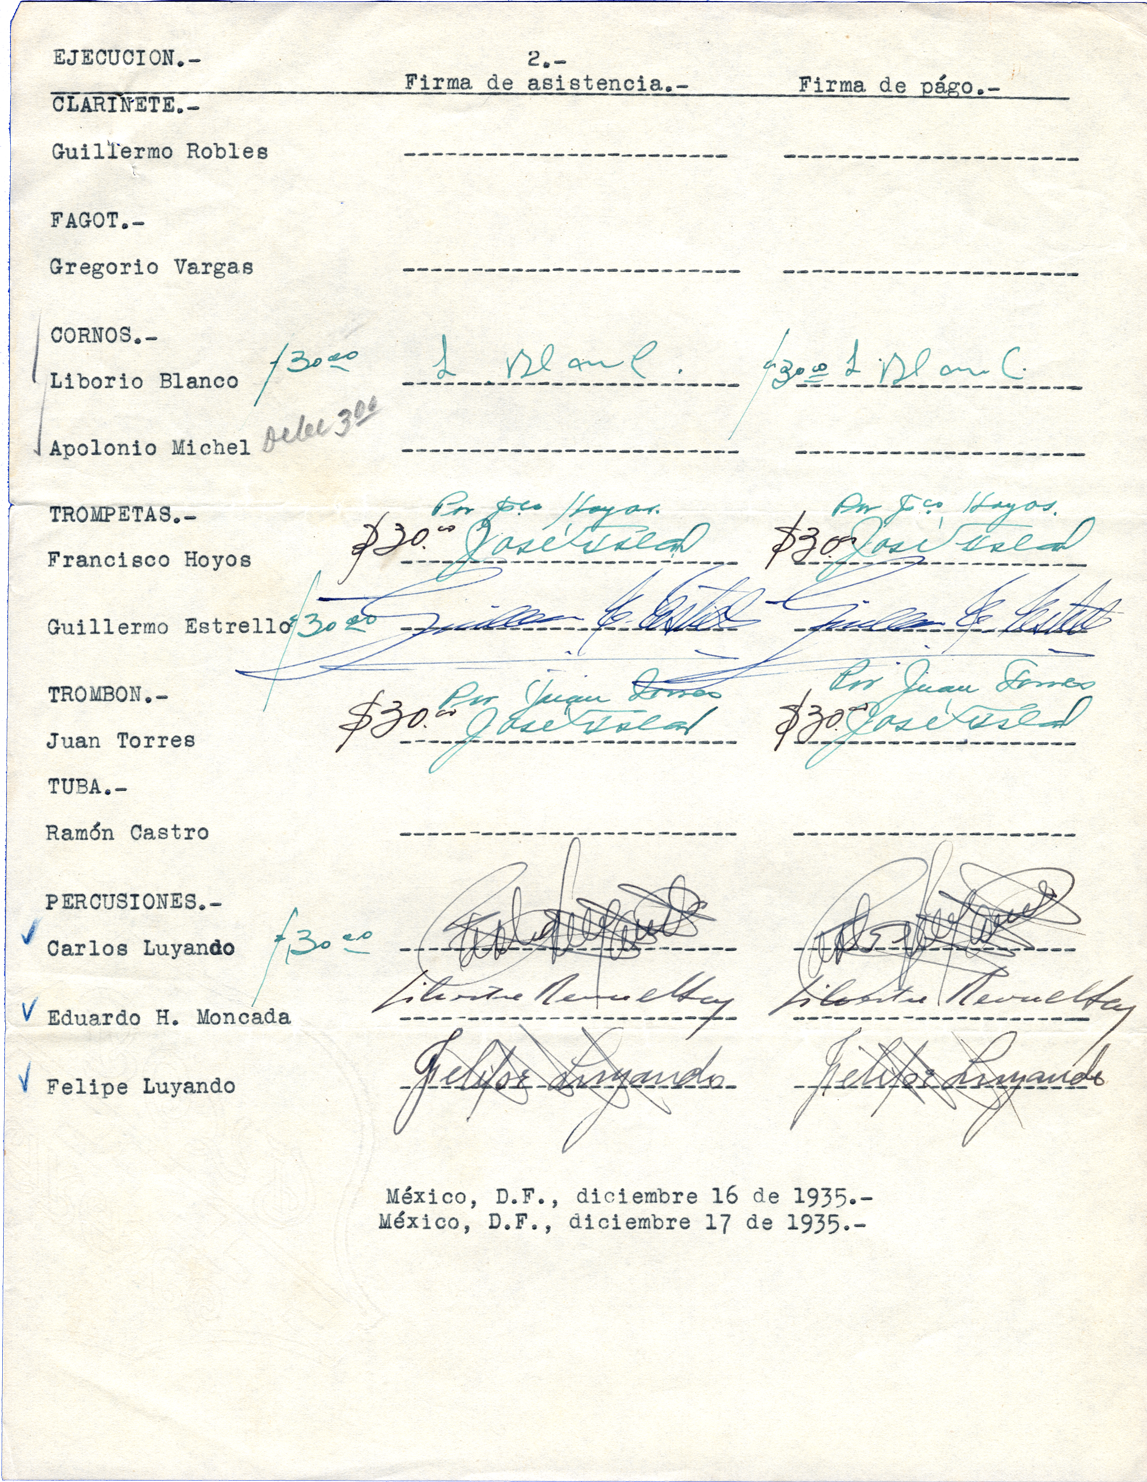 EJECUCION.- 2.-
Firma de asistencia.- Firma de págo.-
CLARINETE.-
Guillermo Robles
FAGOT.-
Gregorio Vargas
CORNOS.-
Liborio Blanco $30.00 L Blanc. $30.00 L Blanc.
Apolonio Michel Debe 3.00
TROMPETAS.- Por Fco Hoyos. Por Fco Hoyos.
Francisco Hoyos $30.00 José $30.00 José
Guillermo Estrello $30.00
TROMBON.- Por Juan Torres Por Juan Torres
Juan Torres $30.00 José $30.00 José
TUBA.-
Ramón Castro
PERCUSIONES.-
Carlos Luyando $30.00
Eduardo H. Moncada Silvestre Revueltas Silvestre Revueltas
Felipe Luyando Felipe Luyando Felipe Luyando
México, D.F., diciembre 16 de 1935.-
México, D.F., diciembre 17 de 1935.-